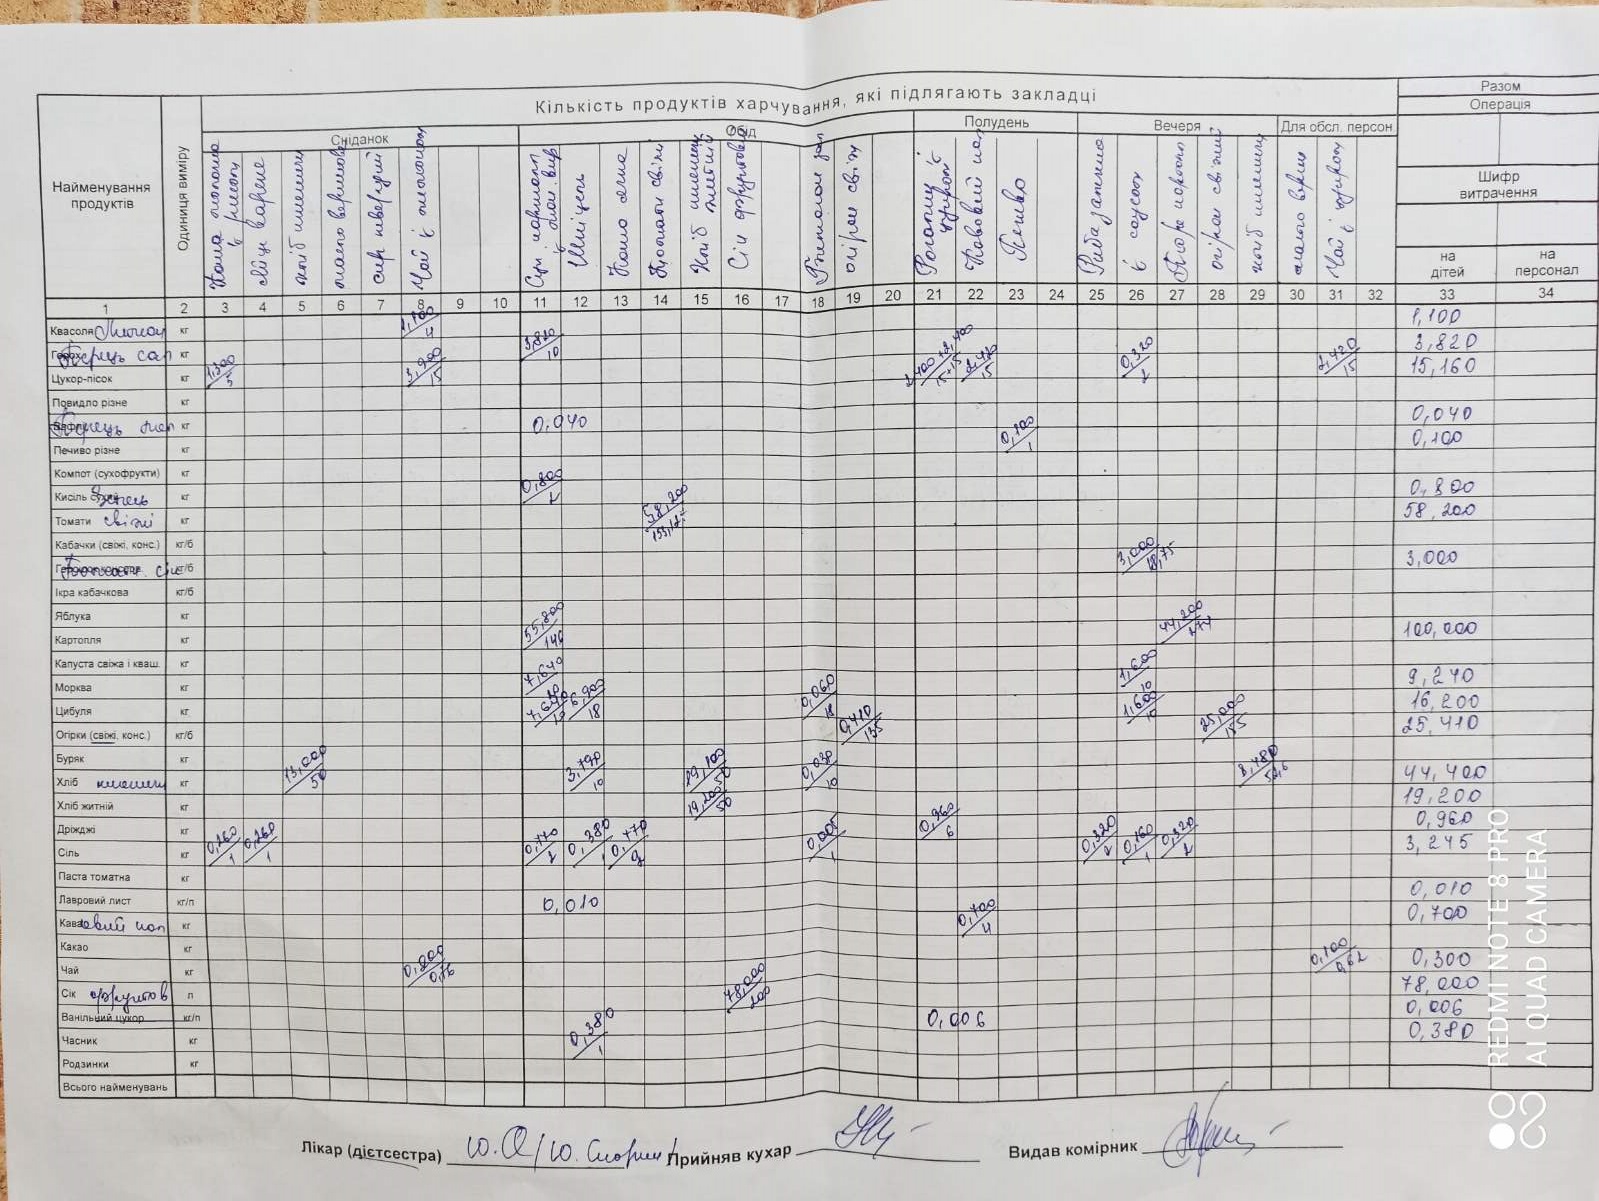 Кількість продуктів харчування, які підлягають закладці
Разом
Операція
Сніданок
Обід
Полудень
Вечеря
Для обсл. персон
Найменування продуктів
Одиниця виміру
Шифр витрачення
яйце варене
хліб пшеничн
сир твердий
Чай з лимоном
Шніцель
Каша ячна
Томати свіжі
Хліб пшенич житній
Сік фруктовий
огірок свіж
Рогалик з цукром
Кавовий нап
Печиво
Риба запечена
з соусом
Пюре картоп
огірок свіжий
хліб пшенич
Чай з цукром
на дітей
на персонал
1 2 3 4 5 6 7 8 9 10 11 12 13 14 15 16 17 18 19 20 21 22 23 24 25 26 27 28 29 30 31 32 33 34
Квасоля Лимон кг 1,100/4 1,100
Горох кг 3,820/10 3,820
Цукор-пісок кг 1,300/5 3,900/15 2,400+2,400/15+15 2,420/15 0,320/2 2,420/15 15,160
Повидло різне кг
Вафлі кг 0,040 0,040
Печиво різне кг 0,100/1 0,100
Компот (сухофрукти) кг
Кисіль сухий кг 0,800/2 0,800
Томати свіжі кг 58,200 58,200
Кабачки (свіжі, конс.) кг/б
кг/б 3,000/18,75 3,000
Ікра кабачкова кг/б
Яблука кг
Картопля кг 55,800/146 44,200/277 100,000
Капуста свіжа і кваш. кг
Морква кг 7,640 1,600/10 9,240
Цибуля кг 7,640 6,900/18 0,060/18 1,600/10 16,200
Огірки (свіжі, конс.) кг/б 0,410/135 25,000/155 25,410
Буряк кг
Хліб пшенич кг 13,000/50 3,790/10 19,100/50 0,030/10 8,480 44,400
Хліб житній кг 19,200/50 19,200
Дріжджі кг 0,960/6 0,960
Сіль кг 0,260/1 0,260/1 0,770/2 0,380/1 0,770/2 0,005/1 0,320/2 0,160/1 0,320/2 3,245
Паста томатна кг
Лавровий лист кг/п 0,010 0,010
Кавовий нап кг 0,700/4 0,700
Какао кг
Чай кг 0,200/0,76 0,100/0,62 0,300
Сік фруктов л 78,000/200 78,000
Ванільний цукор кг/п 0,006 0,006
Часник кг 0,380/1 0,380
Родзинки кг
Всього найменувань
Лікар (дієтсестра)
Прийняв кухар
Видав комірник
REDMI NOTE 8 PRO
AI QUAD CAMERA